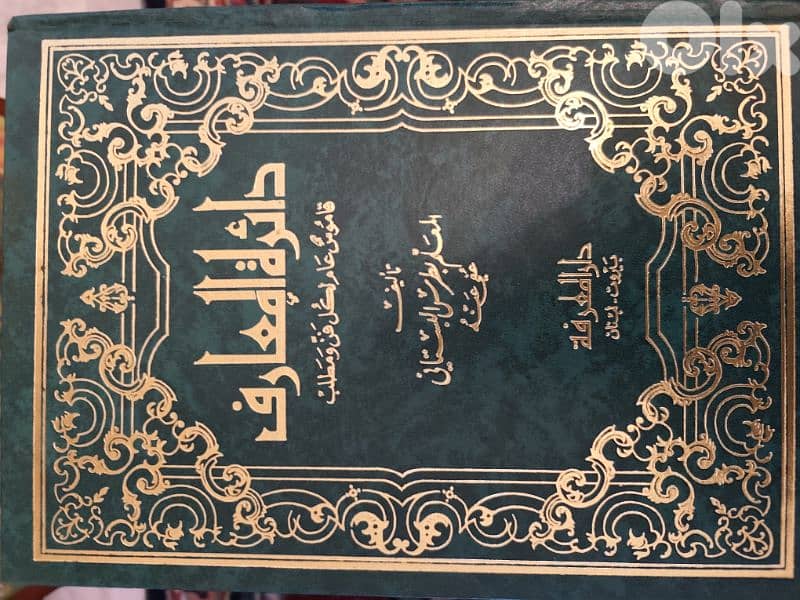 دائرة المعارف
قاموس عام لكل فن ومطلب
تأليف
المعلم بطرس البستاني
عفي عنه
دار المعرفة
بيروت - لبنان
olx